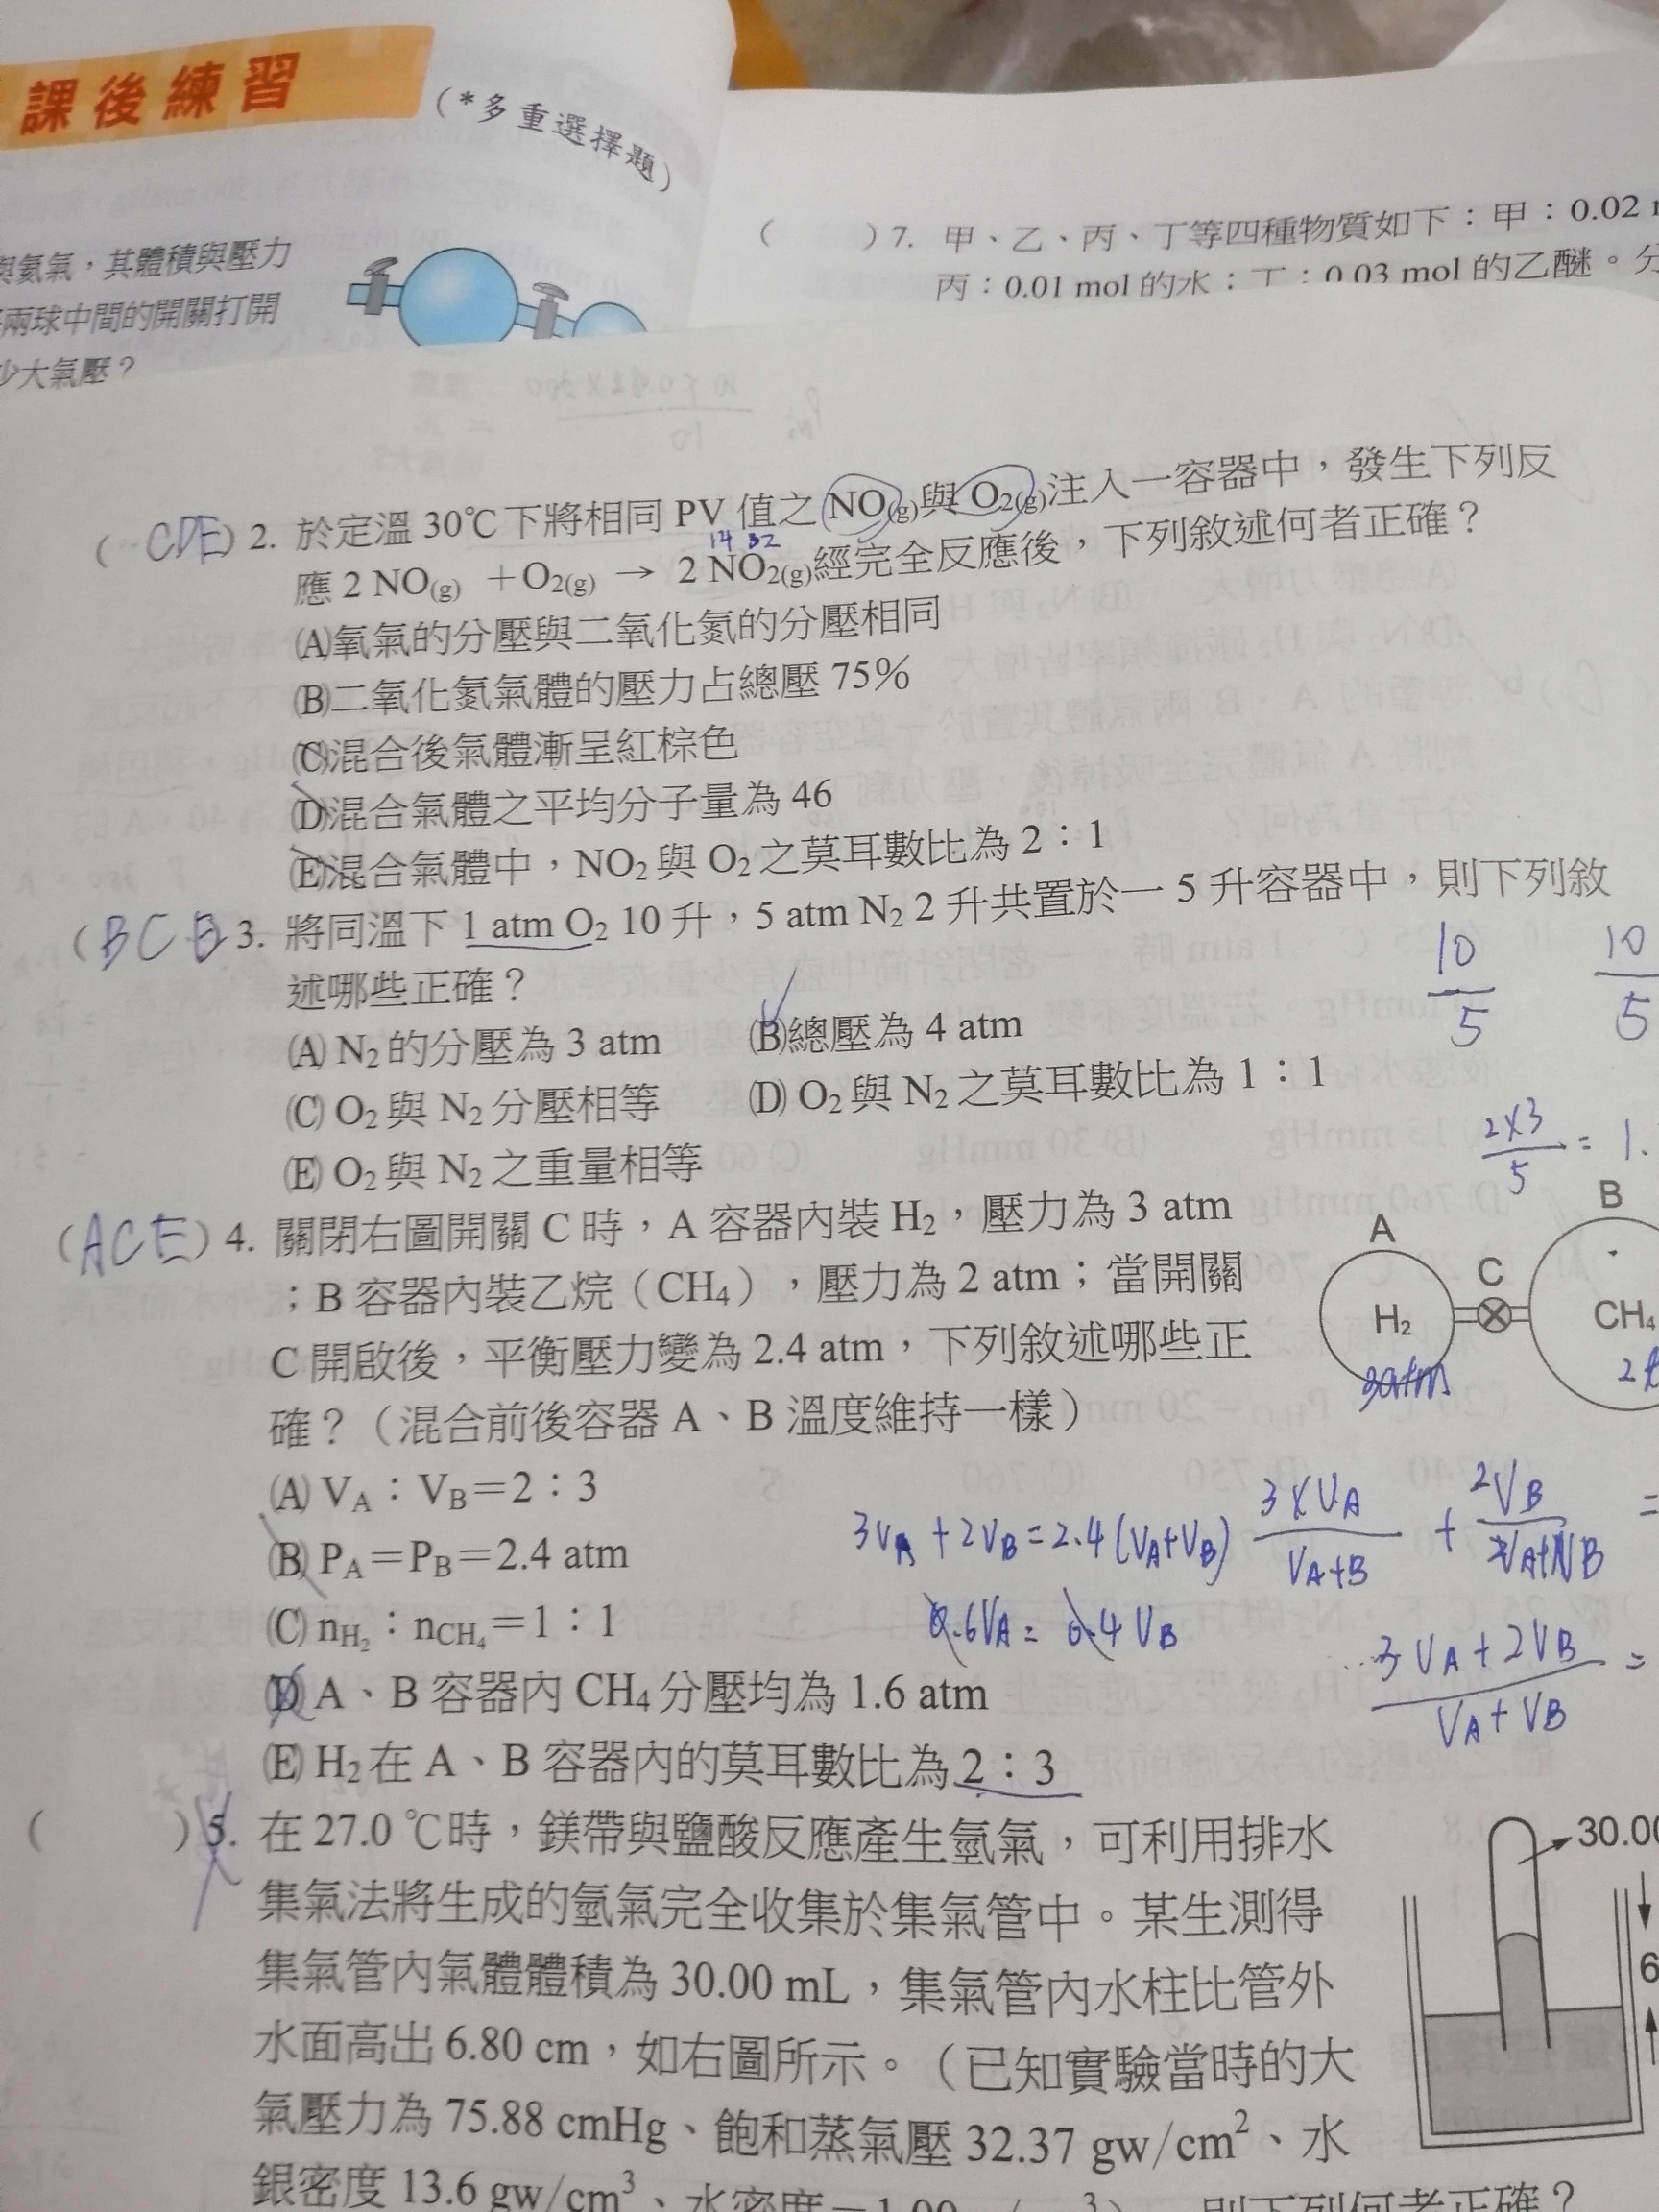 課後練習
(*多重選擇題)
與氦氣，其體積與壓力
兩球中間的開關打開
少大氣壓？
( )7. 甲、乙、丙、丁等四種物質如下：甲：0.02
丙：0.01 mol 的水；丁：0.03 mol 的乙醚。分
(CDE) 2. 於定溫 30℃下將相同 PV 值之 NO(g)與 O2(g)注入一容器中，發生下列反
14 32
應 2 NO(g) +O2(g) → 2 NO2(g)經完全反應後，下列敘述何者正確？
(A)氧氣的分壓與二氧化氮的分壓相同
(B)二氧化氮氣體的壓力占總壓 75%
(C)混合後氣體漸呈紅棕色
(D)混合氣體之平均分子量為 46
(E)混合氣體中，NO2與 O2之莫耳數比為 2：1
(BC) 3. 將同溫下 1 atm O2 10 升，5 atm N2 2 升共置於一 5 升容器中，則下列敘
述哪些正確？
10/5 10/5
(A) N2的分壓為 3 atm (B)總壓為 4 atm
(C) O2與 N2分壓相等 (D) O2與 N2之莫耳數比為 1：1
(E) O2與 N2之重量相等
2×3/5 = 1.
(ACE) 4. 關閉右圖開關 C 時，A 容器內裝 H2，壓力為 3 atm
；B 容器內裝乙烷（CH4），壓力為 2 atm；當開關
C 開啟後，平衡壓力變為 2.4 atm，下列敘述哪些正
確？（混合前後容器 A、B 溫度維持一樣）
A
B
C
H2
CH4
3atm
2
(A) VA：VB=2：3
(B) PA=PB=2.4 atm
(C) nH2：nCH4=1：1
(D) A、B 容器內 CH4分壓均為 1.6 atm
(E) H2在 A、B 容器內的莫耳數比為 2：3
3VA + 2VB = 2.4 (VA+VB)
3×VA/VA+B + 2VB/VA+VB =
0.6VA = 0.4 VB
3VA + 2VB/VA + VB =
( )5. 在 27.0 ℃時，鎂帶與鹽酸反應產生氫氣，可利用排水
集氣法將生成的氫氣完全收集於集氣管中。某生測得
集氣管內氣體體積為 30.00 mL，集氣管內水柱比管外
水面高出 6.80 cm，如右圖所示。（已知實驗當時的大
氣壓力為 75.88 cmHg、飽和蒸氣壓 32.37 gw/cm2、水
銀密度 13.6 gw/cm3、水密度=1.00
則下列何者正確？
30.00
6